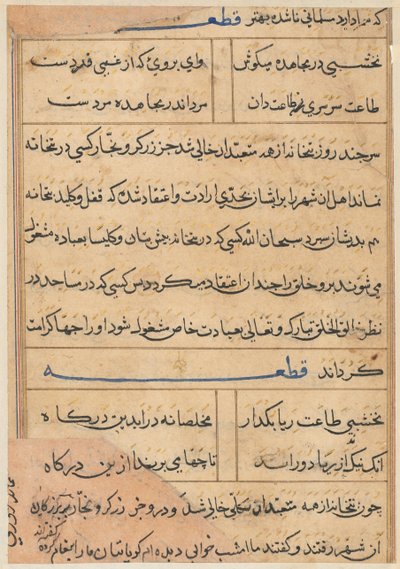 که میدارد سلمانی ناشده بهتر قطعه
نخشبی در مجاهده میکوش وای بروی که از غبی فردست
طاعت سرسری نه طاعت دان مرد اندر مجاهده مردست
سر چند روز بتخانه از همه متعبدان خالی شد جز زرگر و نجار کسی در بتخانه
نماند اهل آن شهر را بر ایشان بحدی ارادت و اعتقاد شد که قفل و کلید بتخانه
هم بدیشان سپرد سبحان الله کسی که در بتخانه پیش بتان و کلیسا بعباده مشغول
می شوند برو خلق را چندان اعتقاد میگردد پس کسی که در مساجد در
نظر خالق الخلق تبارک و تعالی بعبادت خاص مشغول شود او را چها کرامت
گرداند قطعه
نخشبی طاعت ریا بگذار مخلصانه در ابدین درگاه
آنک نیک از ریا دور اند تا چها می برند از ین درگاه
چون بتخانه از همه متعبدان خالی شد و در وجز زرگر و نجار بر بزرگان
آن شهر رفتند و گفتند ما امشب خوابی دیده ام گویا بتان ما را